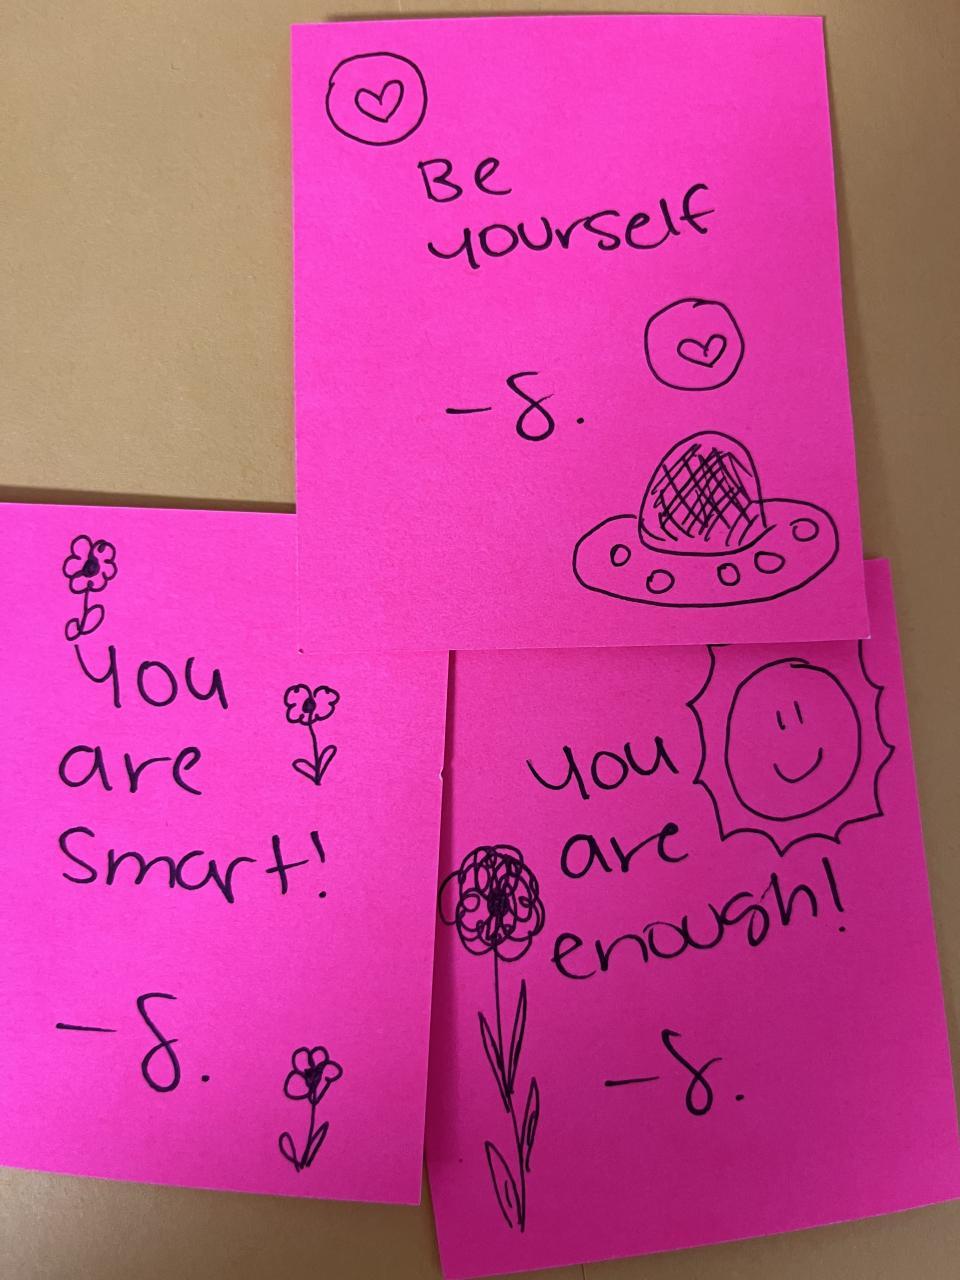 Be
yourself
- S.
you
are
smart!
- S.
you
are
enough!
- S.